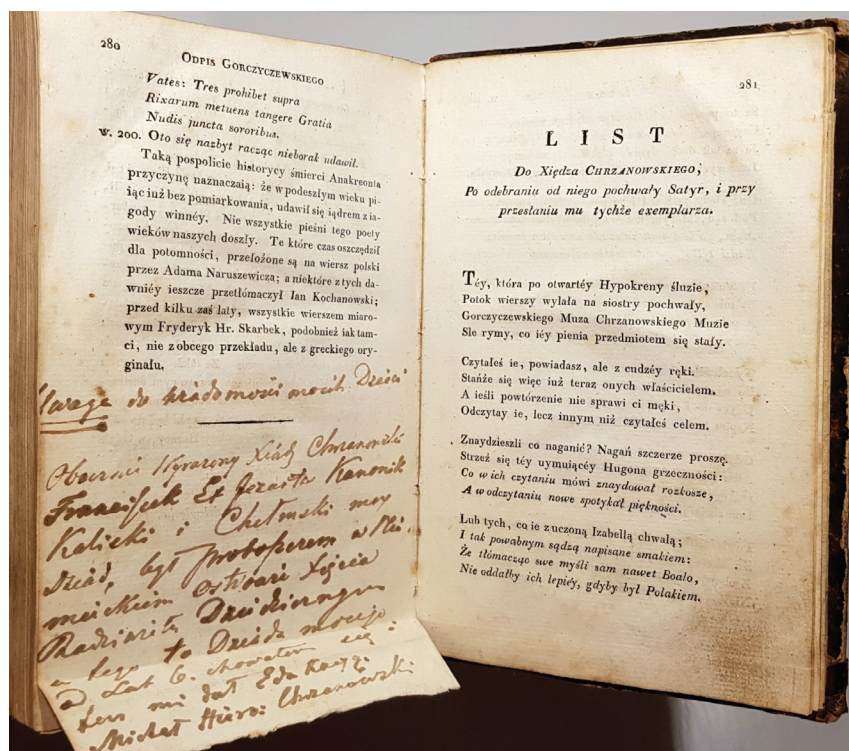 280
ODPIS GORCZYCZEWSKIEGO
Vates: Tres prohibet supra
Rixarum metuens tangere Gratia
Nudis juncta sororibus.
w. 200. Oto się nazbyt racząc nieborak udawił.
Taką pospolicie historycy śmierci Anakreonta
przyczynę naznaczaią: że w podeszłym wieku pi-
iąc iuż bez pomiarkowania, udawił się iądrem z ia-
gody winnéy. Nie wszystkie pieśni tego poety
wieków naszych doszły. Te które czas oszczędził
dla potomności, przełożone są na wiersz polski
przez Adama Naruszewicza; a niektóre z tych da-
wniéy ieszcze przetłómaczył Ian Kochanowski;
przed kilku zaś laty, wszystkie wierszem miaro-
wym Fryderyk Hr. Skarbek, podobnież iak tam-
ci, nie z obcego przekładu, ale z greckiego ory-
ginału.
Uwaga do wiadomości moich Dzieci
Obocznie Wyrażony Xiądz Chrzanowski
Franciszek Ex Jezuita Kanonik
Kaliski i Chełmski moy
Dziad, był proboszczem w Nie-
mieckiem Xięcia
Radziwiłła
a tego to Dziada mojego
od Lat 6. chowałem się
ten mi dał
Michał Chrzanowski
281
LIST
Do Xiędza CHRZANOWSKIEGO,
Po odebraniu od niego pochwały Satyr, i przy
przesłaniu mu tychże exemplarza.
Téy, która po otwartéy Hypokreny śluzie,
Potok wierszy wylała na siostry pochwały,
Gorczyczewskiego Muza Chrzanowskiego Muzie
Sle rymy, co iéy pienia przedmiotem się stały.
Czytałeś ie, powiadasz, ale z cudzéy ręki.
Stańże się więc iuż teraz onych właścicielem.
A ieśli powtórzenie nie sprawi ci męki,
Odczytay ie, lecz innym niż czytałeś celem.
Znaydzieszli co naganić? Nagań szczerze proszę.
Strzeż się téy uymuiącéy Hugona grzeczności:
Co w ich czytaniu mówi znaydował rozkosze,
A w odczytaniu nowe spotykał piękności.
Lub tych, co ie z uczoną Izabellą chwalą;
I tak powabnym sądzą napisane smakiem:
Że tłómacząc swe myśli sam nawet Boalo,
Nie oddałby ich lepiéy, gdyby był Polakiem.